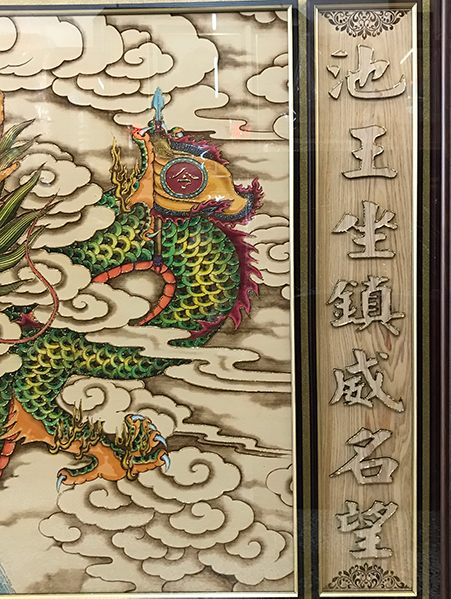 池王坐鎮威名望
令